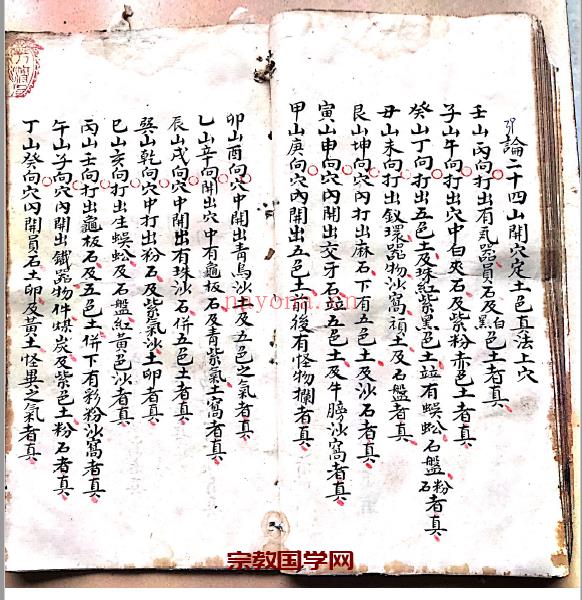 論二十四山開穴定土色真法上穴
壬山丙向打出有瓦器員石及白黑土者真
子山午向打出穴中白夾石及紫粉赤色土者真
癸山丁向打出五色土及珠紅紫黑色土並有蜈蚣石盤石粉者真
丑山未向打出釵環器物沙窩禎土及石盤者真
艮山坤向穴內打出麻石下有五色土及沙石者真
寅山申向穴內開出交牙石並五色土及牛膀沙窩者真
甲山庚向穴內開出五色土前後有怪物攔者真
卯山酉向穴中開出青烏沙土及五色之氣者真
乙山辛向開出穴中有龜板石及青紫氣土窩者真
辰山戌向穴中開出有珠沙石併五色土者真
巽山乾向穴中打出粉石及紫氣沙土卵者真
巳山亥向打出生蜈蚣及石盤紅黃色沙者真
丙山壬向打出龜板石及五色土併下有彩粉沙窩者真
午山子向穴內開出鐵器物件煤炭及紫色土粉石者真
丁山癸向穴內開員石土卵及黃土怪異之氣者真
nayona.cn
宗教国学网